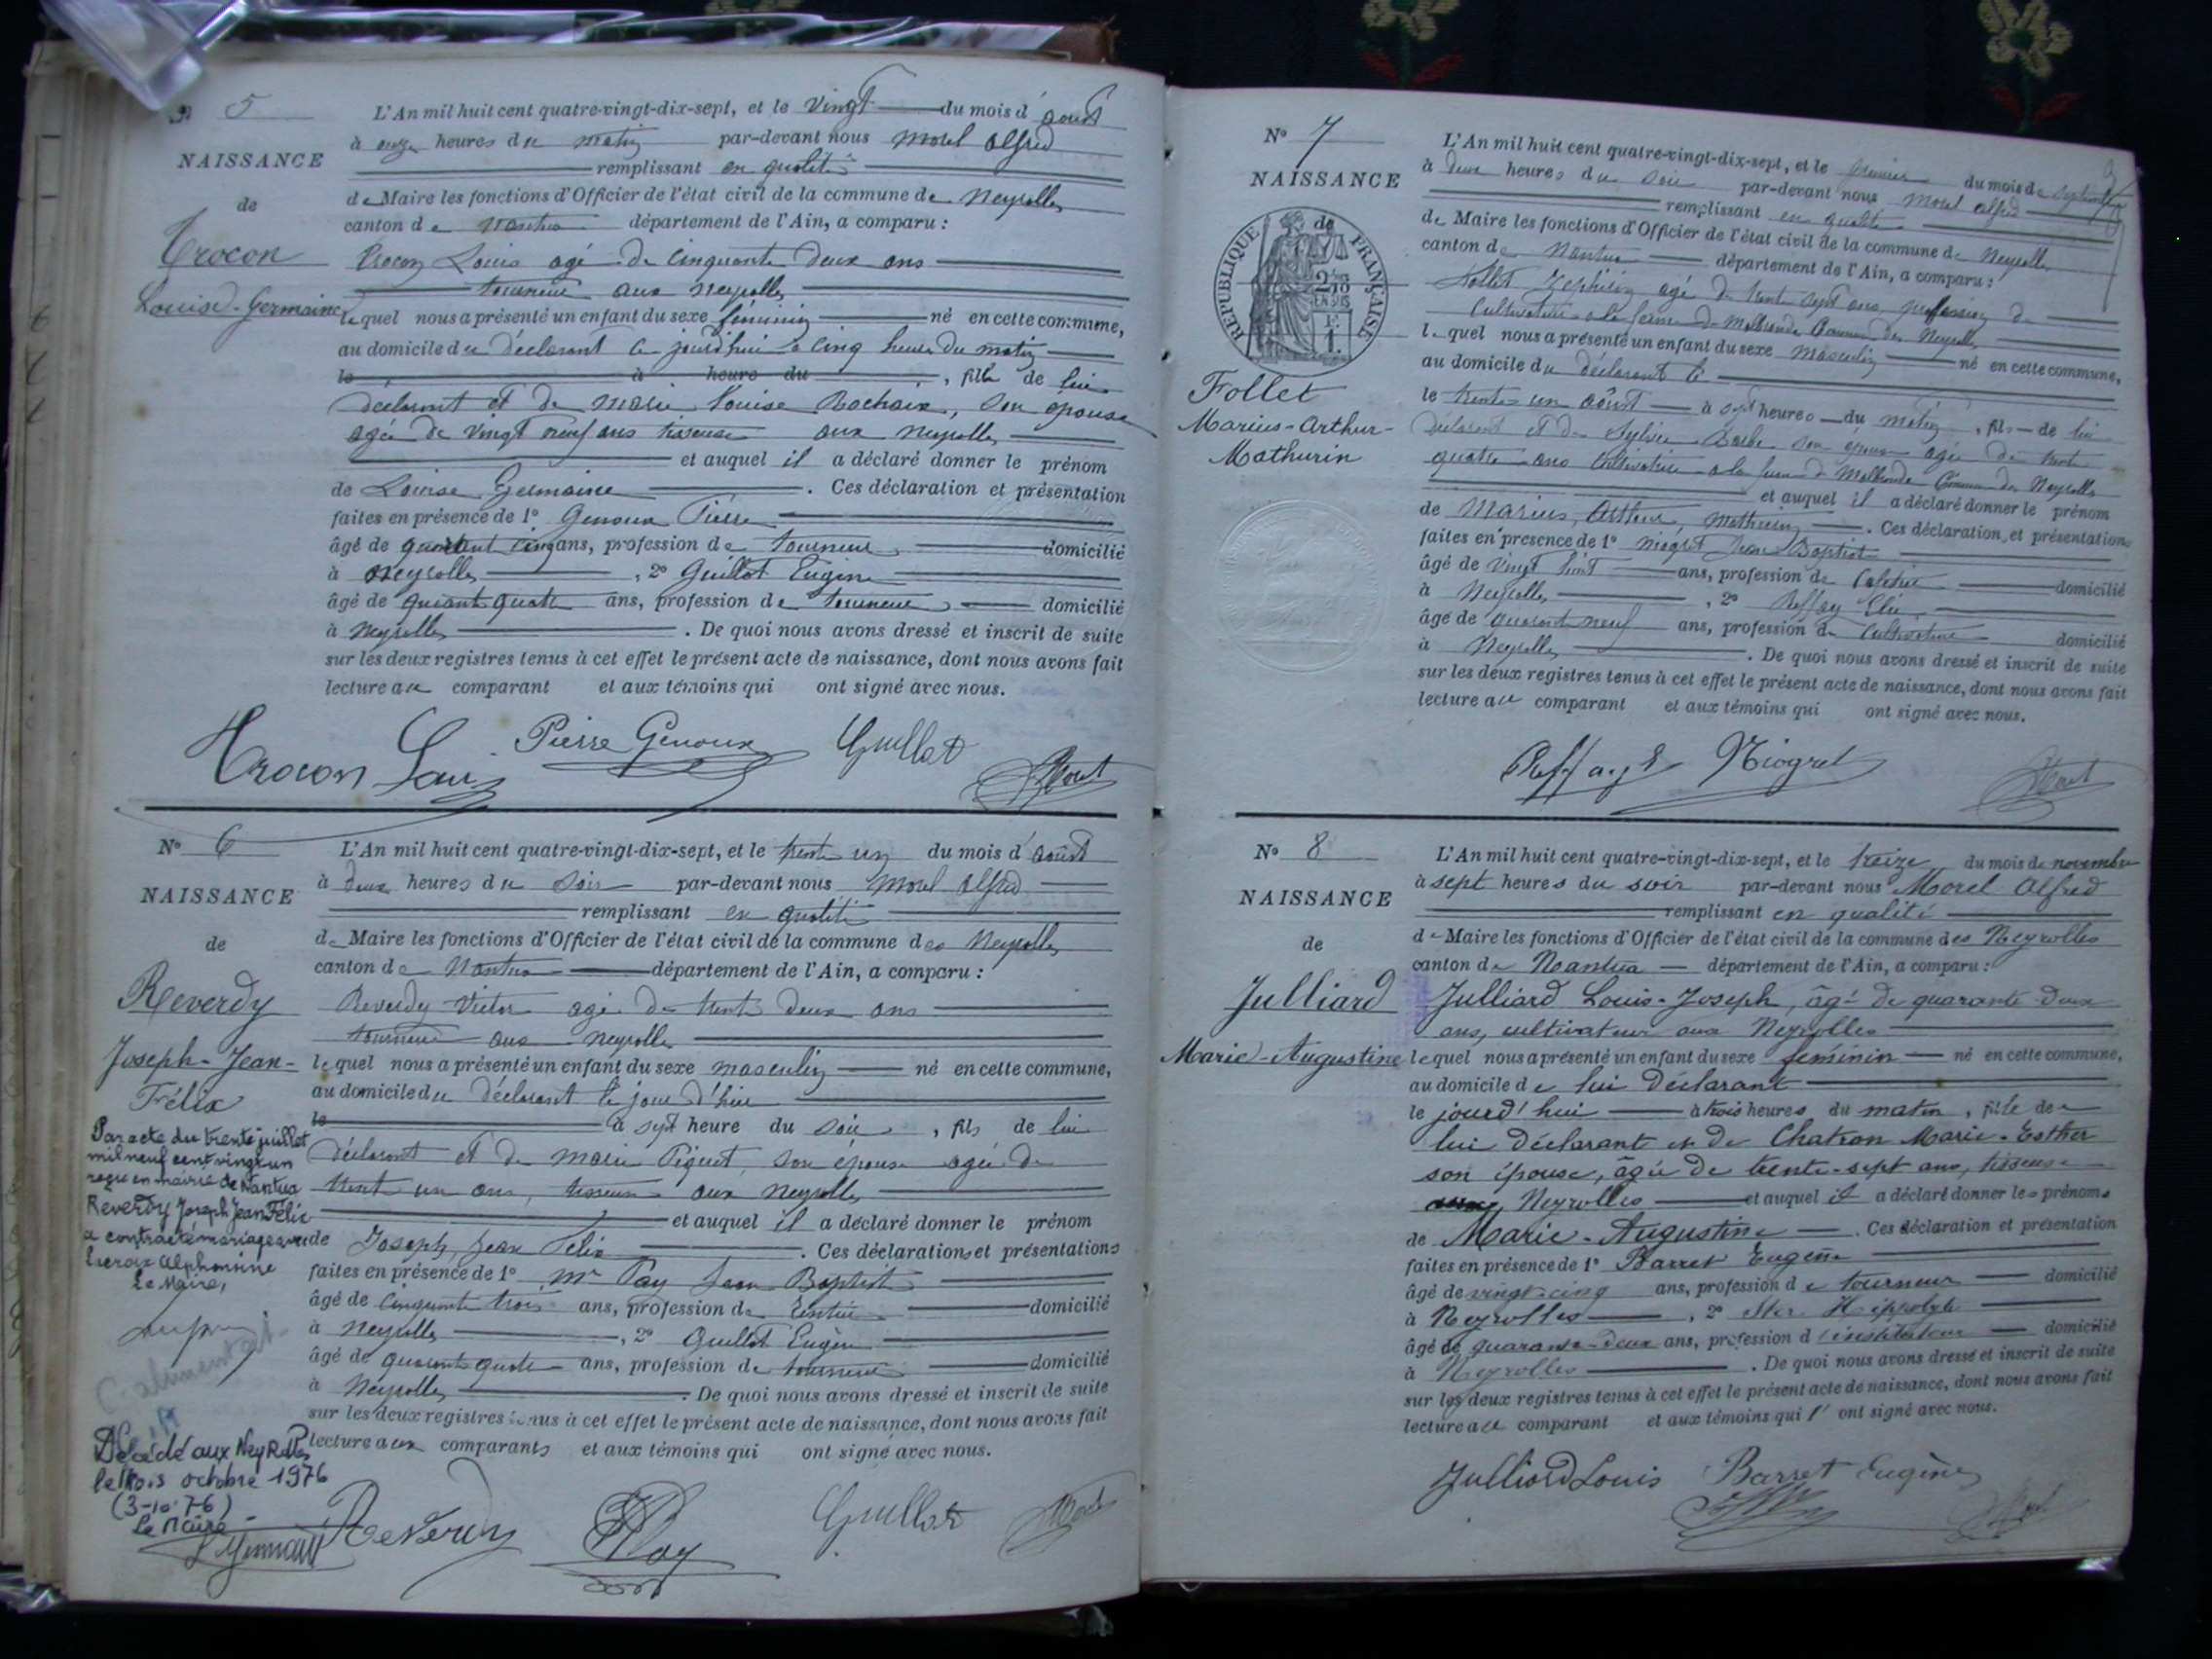 N° 5
NAISSANCE
de
Trocon
Louise-Germaine
L'An mil huit cent quatre-vingt-dix-sept, et le vingt du mois d'août
à onze heures du matin par-devant nous Morel Alfred
remplissant en qualité
de Maire les fonctions d'Officier de l'état civil de la commune de Neyrolles
canton de Nantua département de l'Ain, a comparu :
Trocon Louis agé de cinquante deux ans
tourneur aux Neyrolles
lequel nous a présenté un enfant du sexe féminin né en cette commune,
au domicile du déclarant ce jourd'hui à cinq heures du matin
le à heure du , fille de lui
déclarant et de Marie Louise Rochaix, son épouse
agée de vingt neuf ans tisseuse aux Neyrolles
et auquel il a déclaré donner le prénom
de Louise Germaine . Ces déclaration et présentation
faites en présence de 1° Genoux Pierre
âgé de quarant cinq ans, profession de tourneur domicilié
à Neyrolles , 2° Guillot Eugène
âgé de quarant quatre ans, profession de tourneur domicilié
à Neyrolles . De quoi nous avons dressé et inscrit de suite
sur les deux registres tenus à cet effet le présent acte de naissance, dont nous avons fait
lecture au comparant et aux témoins qui ont signé avec nous.
Trocon Louis Pierre Genoux Guillot Morel
N° 6
NAISSANCE
de
Reverdy
Joseph-Jean-
Félix
Par acte du trente juillet
mil neuf cent vingt un
reçu en mairie de Nantua
Reverdy Joseph Jean Félix
a contracté mariage avec
Lacroix Alphonsine
Le Maire,
Décédé aux Neyrolles
le trois octobre 1976
(3-10-76)
Le Maire
L'An mil huit cent quatre-vingt-dix-sept, et le trente un du mois d'août
à deux heures du soir par-devant nous Morel Alfred
remplissant en qualité
de Maire les fonctions d'Officier de l'état civil de la commune des Neyrolles
canton de Nantua département de l'Ain, a comparu :
Reverdy Victor agé de trente deux ans
tourneur aux Neyrolles
lequel nous a présenté un enfant du sexe masculin né en cette commune,
au domicile du déclarant le jour d'hier
le à sept heure du soir , fils de lui
déclarant et de Marie Piquet, son épouse agée de
trent un ans, tisseuse aux Neyrolles
et auquel il a déclaré donner le prénom
de Joseph, Jean Félix . Ces déclarations et présentations
faites en présence de 1° Mr Pay Jean Baptist
âgé de cinquante trois ans, profession de rentier domicilié
à Neyrolles , 2° Guillot Eugène
âgé de quarante quatre ans, profession de tourneur domicilié
à Neyrolles . De quoi nous avons dressé et inscrit de suite
sur les deux registres tenus à cet effet le présent acte de naissance, dont nous avons fait
lecture aux comparants et aux témoins qui ont signé avec nous.
Reverdy Pay Guillot Morel
N° 7
NAISSANCE
de
RÉPUBLIQUE FRANÇAISE
Follet
Marius-Arthur-
Mathurin
L'An mil huit cent quatre-vingt-dix-sept, et le premier du mois de septembre
à deux heures du soir par-devant nous Morel Alfred
remplissant en qualité
de Maire les fonctions d'Officier de l'état civil de la commune de Neyrolles
canton de Nantua département de l'Ain, a comparu :
Follet Zéphirin agé de trente sept ans, profession de
cultivateur à la ferme de Malbronde Commune des Neyrolles
lequel nous a présenté un enfant du sexe masculin né en cette commune,
au domicile du déclarant le
le trente un août à sept heures du matin , fils de lui
déclarant et de Sylvie Barbe son épouse agée de trente
quatre ans cultivatrice à la ferme de Malbronde Commune des Neyrolles
et auquel il a déclaré donner le prénom
de Marius, Arthur, Mathurin . Ces déclaration et présentations
faites en présence de 1° Niogret Jean Baptiste
âgé de vingt huit ans, profession de domicilié
à Neyrolles , 2° Reffay Elie
âgé de quarant neuf ans, profession de cultivateur domicilié
à Neyrolles . De quoi nous avons dressé et inscrit de suite
sur les deux registres tenus à cet effet le présent acte de naissance, dont nous avons fait
lecture au comparant et aux témoins qui ont signé avec nous.
Reffay E Niogret Morel
N° 8
NAISSANCE
de
Julliard
Marie-Augustine
L'An mil huit cent quatre-vingt-dix-sept, et le treize du mois de novembre
à sept heures du soir par-devant nous Morel Alfred
remplissant en qualité
de Maire les fonctions d'Officier de l'état civil de la commune des Neyrolles
canton de Nantua département de l'Ain, a comparu :
Julliard Louis-Joseph, âgé de quarante-deux
ans, cultivateur aux Neyrolles
lequel nous a présenté un enfant du sexe féminin né en cette commune,
au domicile de lui déclarant
le jourd'hui à trois heures du matin , fille de
lui déclarant et de Chatron Marie-Esther
son épouse, âgée de trente-sept ans, tisseuse
Neyrolles et auquel il a déclaré donner les prénoms
de Marie-Augustine . Ces déclaration et présentation
faites en présence de 1° Barret Eugène
âgé de vingt-cinq ans, profession de tourneur domicilié
à Neyrolles , 2° Hippolyte
âgé de quarante-deux ans, profession d'instituteur domicilié
à Neyrolles . De quoi nous avons dressé et inscrit de suite
sur les deux registres tenus à cet effet le présent acte de naissance, dont nous avons fait
lecture au comparant et aux témoins qui l' ont signé avec nous.
Julliard Louis Barret Eugène